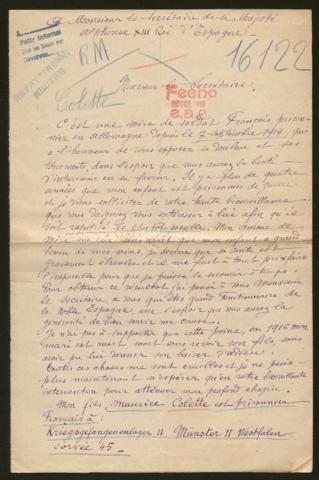 A Monsieur le Secrétaire de sa Majesté
Alphonse XIII Roi d'Espagne.
RM
16122
Monsieur le Secrétaire.
Colette
Fecho
e.a.c.
C'est une mère de soldat Français prison-
nier en Allemagne depuis le 7 septembre 1914, qui
a l'honneur de vous exposer sa douleur et ses
tourments, dans l'espoir que vous aurez la bonté
d'intervenir en sa faveur. Il y a plus de quatre
années que mon enfant est prisonnier de guerre
et je viens solliciter de votre haute bienveillance
que vous daigniez vous intéresser à lui afin qu'il
soit rapatrié le plus tôt possible. Mon amour de
mère me fait sentir que mon enfant a grand
besoin de mes soins, je devine que sa santé est
gravement ébranlée et il me faut à tout prix faire
l'impossible pour que je puisse le secourir à temps.
Pour obtenir ce bienfait j'ai pensé à vous Monsieur
le Secrétaire, à vous qui êtes grand fonctionnaire de
la Noble Espagne, avec l'espoir que vous aurez la
générosité de bien
Je n'ai pas à supporter que cette peine, en 1916 mon
mari est mort sans revoir son fils, sans
avoir pu lui donner son baiser d'adieu.
Toutes ces choses me sont cruelles et je ne puis
plus maintenant n'espérer qu'en votre bienveillante
intervention pour atténuer mon profond chagrin.
Mon fils, Maurice Colette est prisonnier
Français à :
Kriegsgefangenenlager II Münster II Westfalen
corvée 45 -